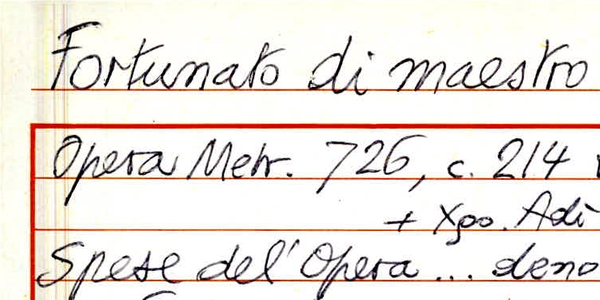 Fortunato di maestro
Opera Metr. 726, c. 214
+ Xpo. Adì
Spese del'Opera... deno